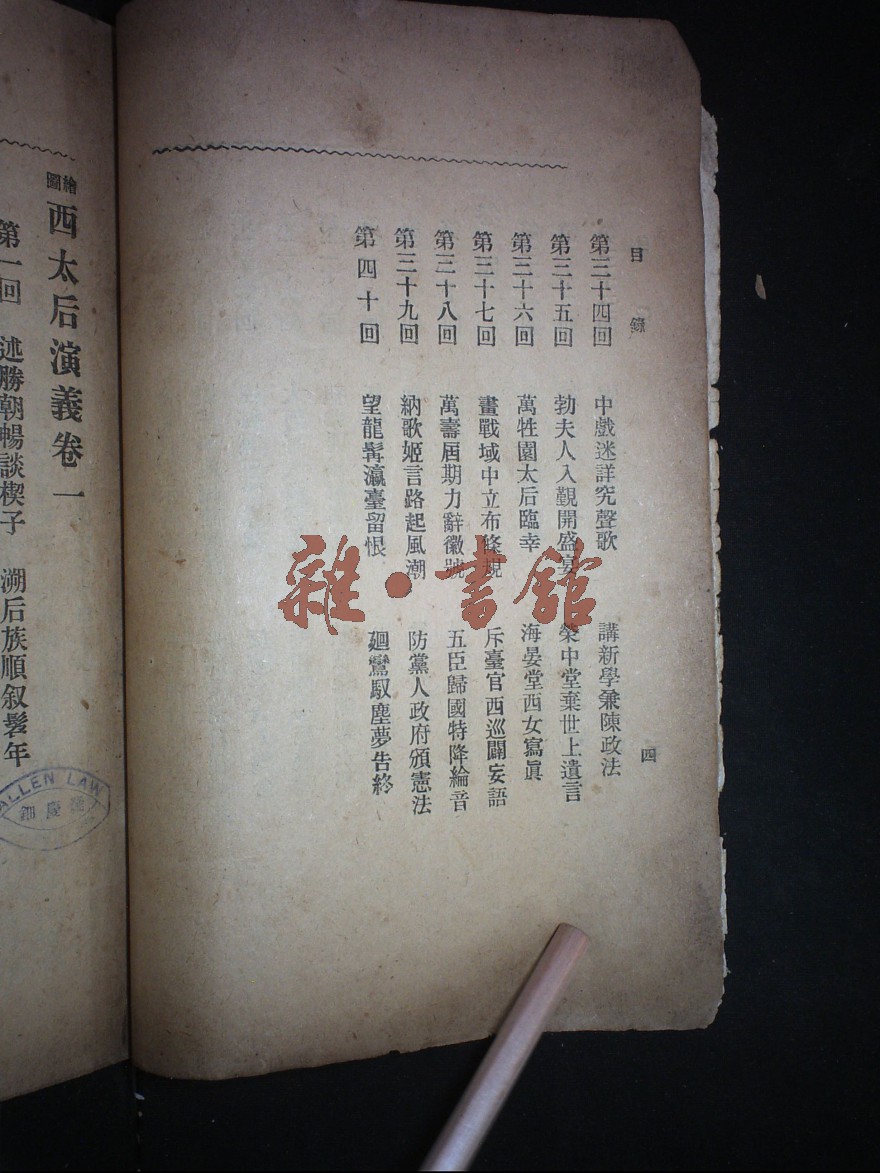 目錄
第三十四回 中戲迷詳究聲歌 講新學兼陳政法
第三十五回 勃夫人入覲開盛宴 榮中堂棄世上遺言
第三十六回 萬牲園太后臨幸 海晏堂西女寫眞
第三十七回 畫戰域中立布條規 斥臺官西巡闢妄語
第三十八回 萬壽屆期力辭徽號 五臣歸國特降綸音
第三十九回 納歌姬言路起風潮 防黨人政府頒憲法
第四十回 望龍髯瀛臺留恨 廻鸞馭塵夢告終
四
繪圖西太后演義卷一
第一回 述勝朝暢談楔子 溯后族順叙髫年
雜·書館
ALLEN LAW